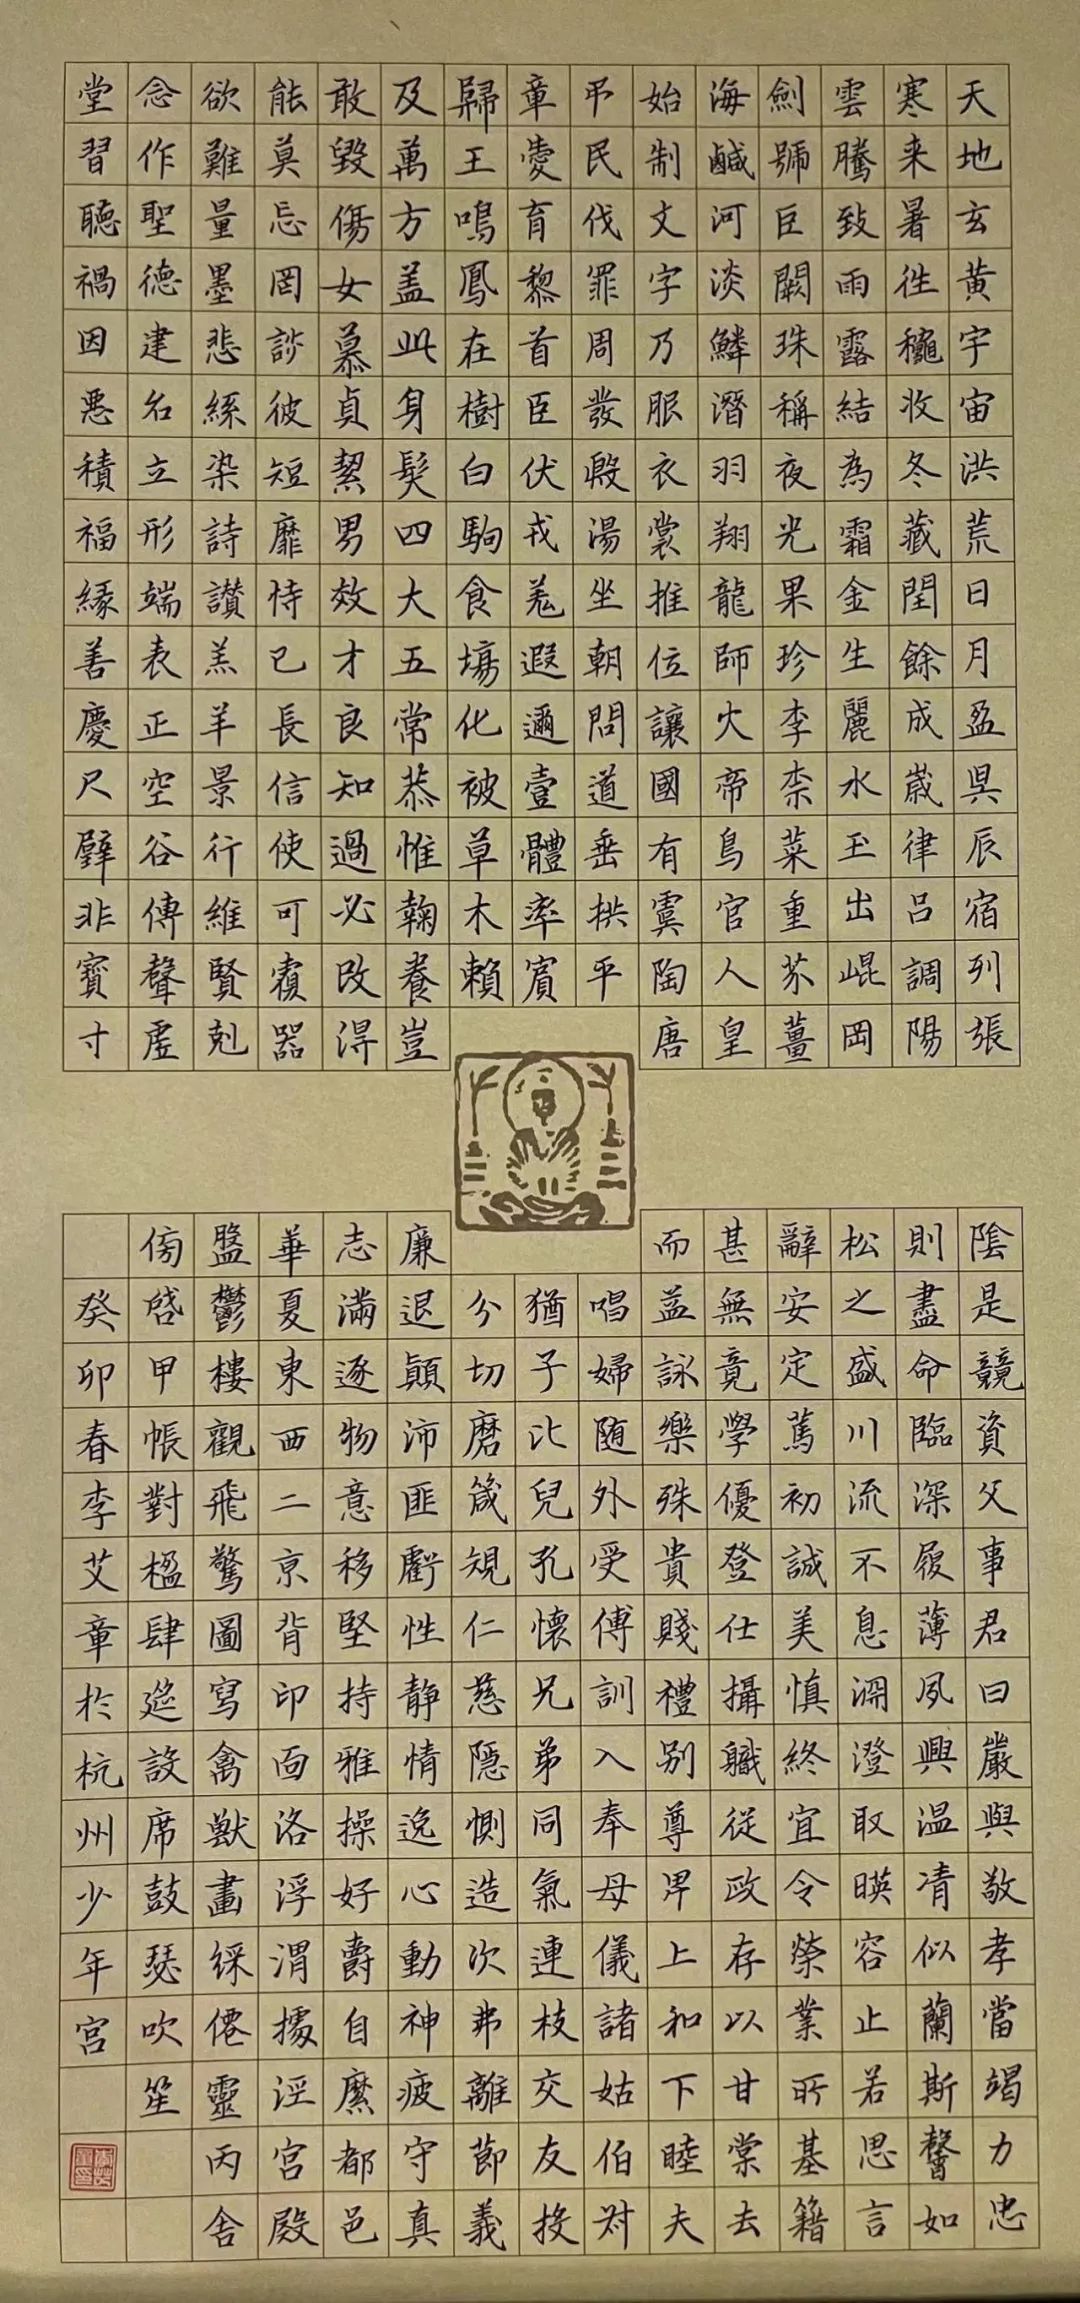 天地玄黄宇宙洪荒日月盈昃辰宿列張
寒来暑往穐收冬藏閏餘成歲律吕調陽
雲騰致雨露結為霜金生麗水玉出崐岡
劍號巨闕珠稱夜光果珍李柰菜重芥薑
海鹹河淡鱗潛羽翔龍師火帝鳥官人皇
始制文字乃服衣裳推位讓國有虞陶唐
弔民伐罪周發殷湯坐朝問道垂拱平
章愛育黎首臣伏戎羌遐邇壹體率賓
歸王鳴鳳在樹白駒食場化被草木賴
及萬方盖此身髮四大五常恭惟鞠養豈
敢毀傷女慕貞絜男效才良知過必改得
能莫忘罔談彼短靡恃己長信使可覆器
欲難量墨悲絲染詩讚羔羊景行維賢剋
念作聖德建名立形端表正空谷傳聲虛
堂習聽禍因惡積福緣善慶尺璧非寶寸
陰是競資父事君曰嚴與敬孝當竭力忠
則盡命臨深履薄夙興温凊似蘭斯馨如
松之盛川流不息淵澄取暎容止若思言
辭安定篤初誠美慎終宜令榮業所基籍
甚無竟學優登仕攝職從政存以甘棠去
而益詠樂殊貴賤禮別尊卑上和下睦夫
唱婦随外受傅訓入奉母儀諸姑伯叔
猶子比兒孔懷兄弟同氣連枝交友投
分切磨箴規仁慈隱惻造次弗離節義
廉退顛沛匪虧性静情逸心動神疲守真
志滿逐物意移堅持雅操好爵自縻都邑
華夏東西二京背邙面洛浮渭據涇宫殿
盤鬱樓觀飛驚圖寫禽獸畫綵僊靈丙舍
傍啓甲帳對楹肆筵設席鼓瑟吹笙
癸卯春李艾章於杭州少年宫